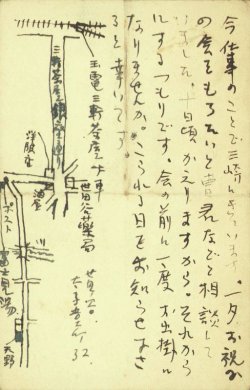 今仕事のことで三崎に
一夕お祝か
の会をもちたいと曹君などと相談して
いました。廿日頃かえりますから。それから
にするつもりです。会の前に一度お出掛に
なりませんか。こられる日をお知らせ下さ
ると幸いです。
玉電三軒茶屋下車
三軒茶屋銀座通り
世田谷薬局
洋服店
酒屋
ポスト
川
富士見湯
天野
太子堂
32